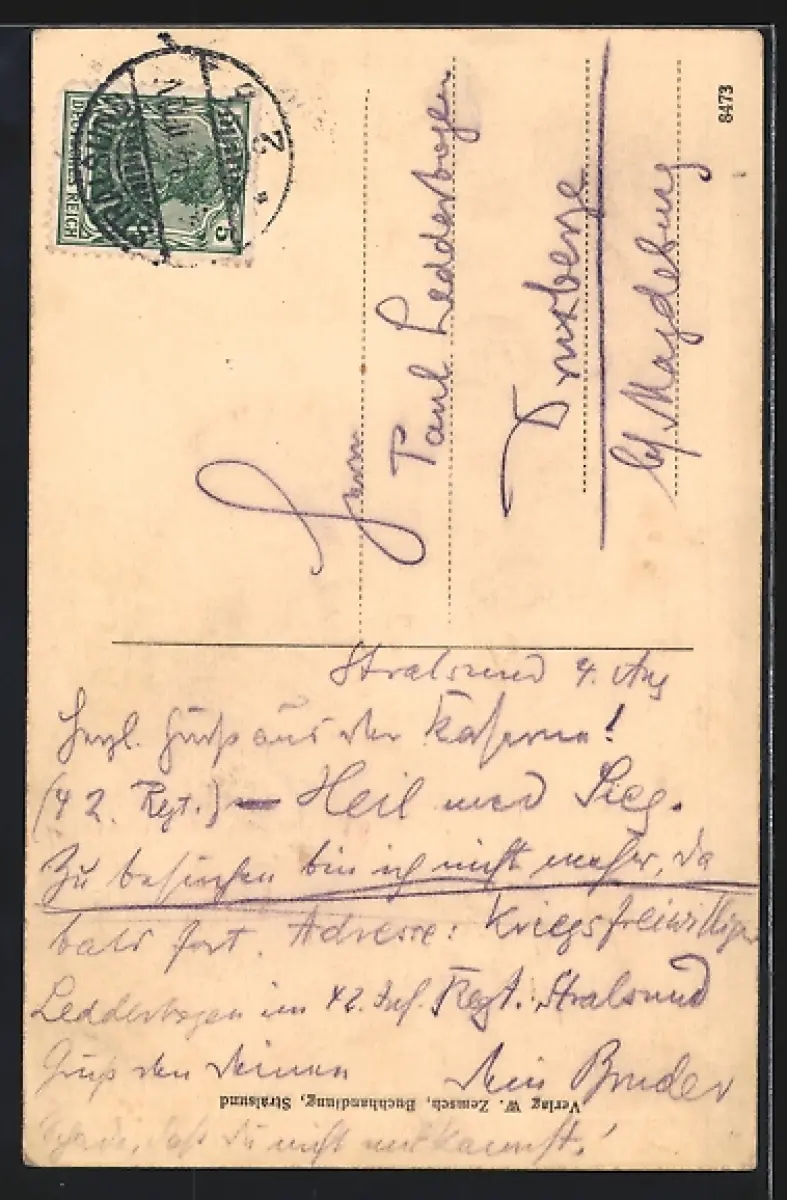 DEUTSCHES REICH
5
STRALSUND
8473
Herrn
Paul Ledderbogen
Druxberge
bei Magdeburg
Stralsund 4. Aug
Herzl. Gruß aus der Kaserne!
(42. Regt.) – Heil und Sieg.
Zu besuchen bin ich nicht mehr, da
bald fort. Adresse: Kriegsfreiwilliger
Ledderbogen im 42. Inf. Regt. Stralsund
Gruß den Deinen Dein Bruder
Verlag W. Zemsch, Buchhandlung, Stralsund
Schade, daß Du nicht mitkannst!